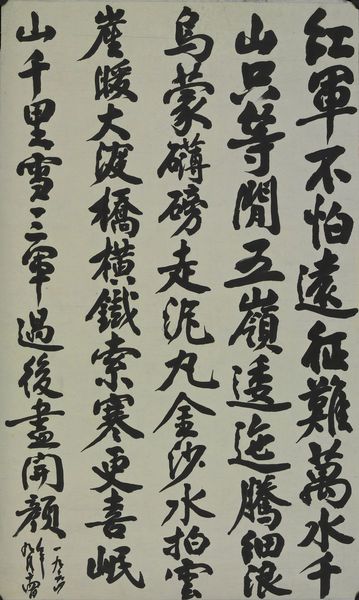 紅軍不怕遠征難萬水千
山只等閒五嶺逶迤騰細浪
烏蒙礴磅走泥丸金沙水拍雲
崖暖大渡橋橫鐵索寒更喜岷
山千里雪三軍過後盡開顏
一九六